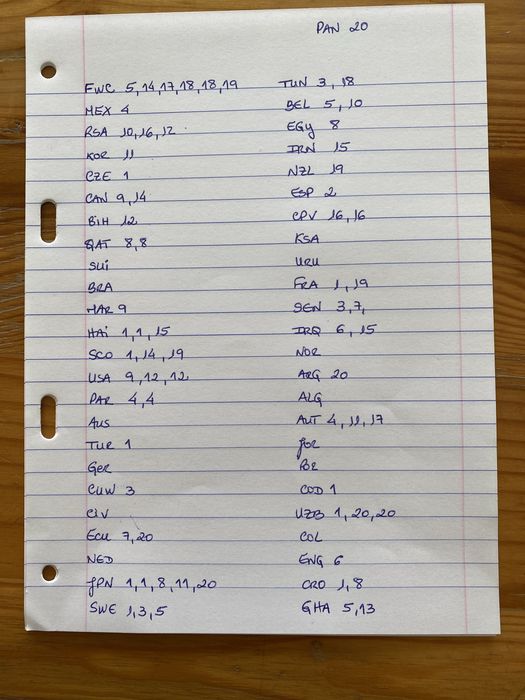 PAN 20
FWC 5,14,17,18,18,19
MEX 4
RSA 10,16,12
KOR 11
CZE 1
CAN 9,14
BiH 12
QAT 8,8
Sui
BRA
MAR 9
HAi 1,1,15
SCO 1,14,19
USA 9,12,12
PAR 4,4
Aus
TUR 1
Ger
CUW 3
CIV
Ecu 7,20
NED
JPN 1,1,8,11,20
SWE 1,3,5
TUN 3,18
BEL 5,10
EGy 8
IRN 15
NZL 19
ESP 2
CPV 16,16
KSA
URU
FRA 1,19
SEN 3,7,
IRQ 6,15
NOR
ARG 20
ALG
AUT 4,11,17
JOR
POR
COD 1
UZB 1,20,20
COL
ENG 6
CRO 1,8
GHA 5,13